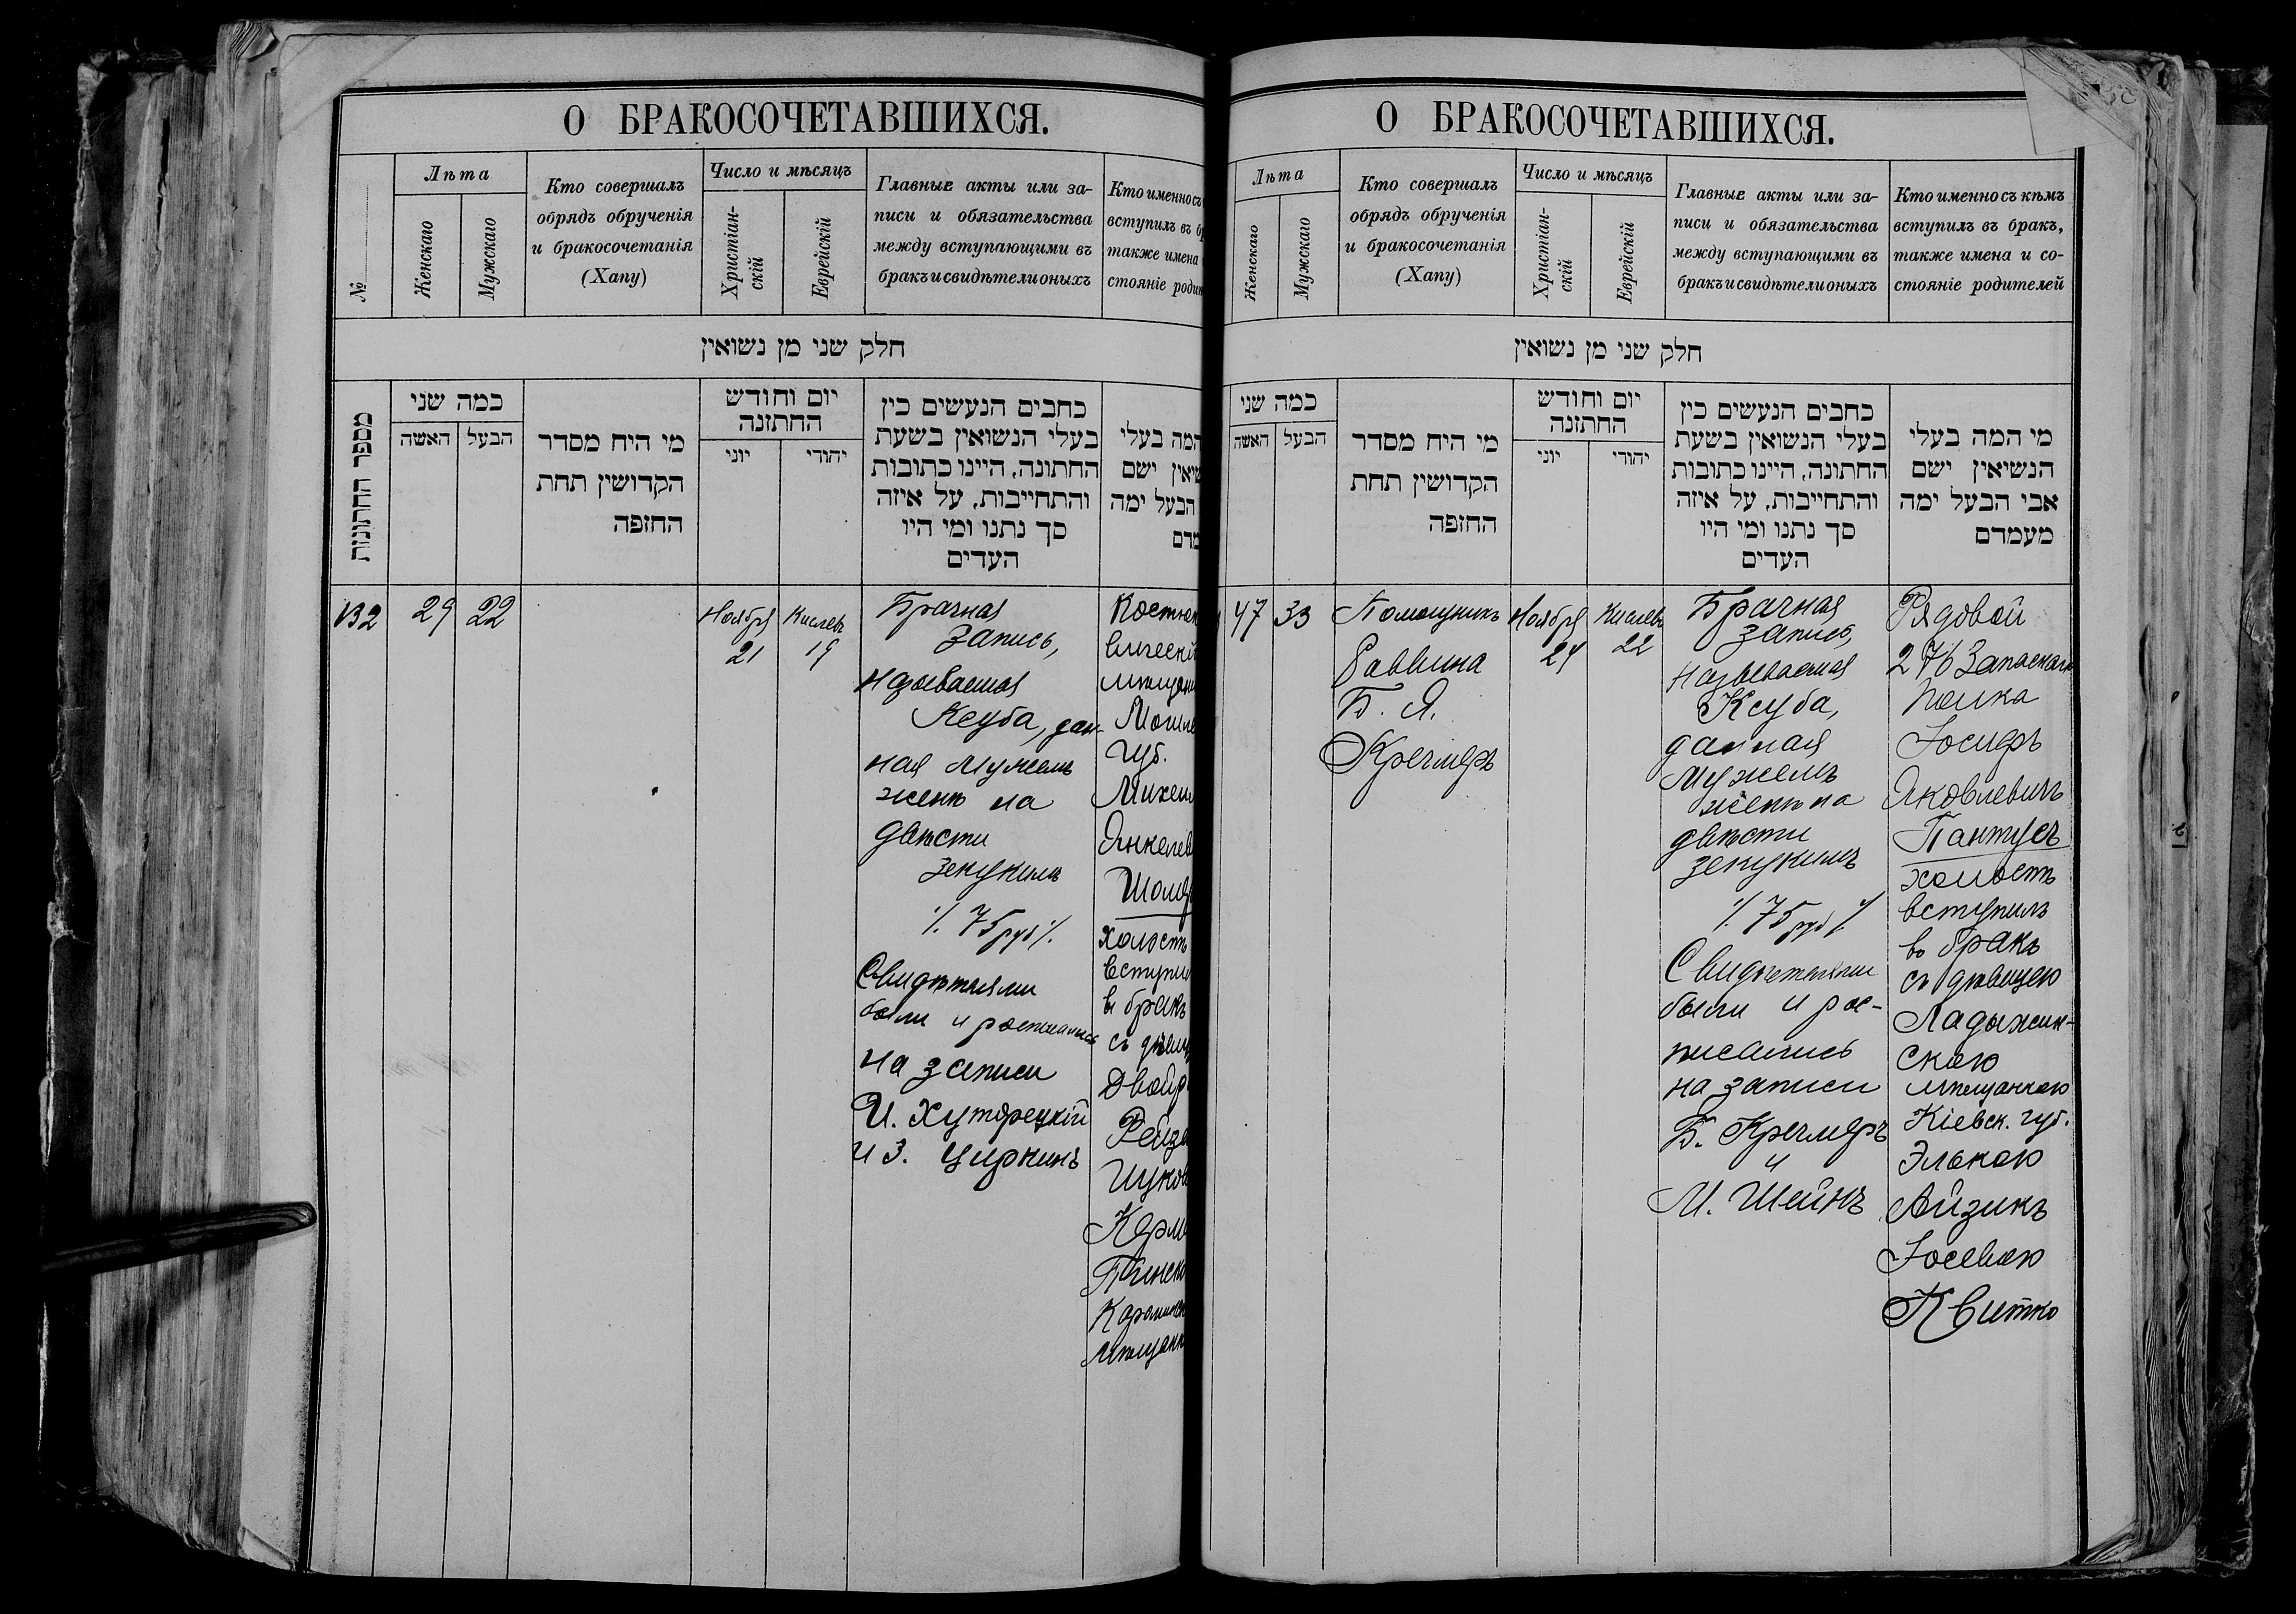 О БРАКОСОЧЕТАВШИХСЯ.
№
Лѣта
Женскаго
Мужскаго
Кто совершалъ
обрядъ обрученія
и бракосочетанія
(Хапу)
Число и мѣсяцъ
Христіан-
скій
Еврейскій
Главные акты или за-
писи и обязательства
между вступающими въ
бракъ и свидѣтели оныхъ
Кто именно съ
вступилъ въ б
также имена
стояніе роди
חלק שני מן נשואין
מספר החתונות
כמה שני
האשה
הבעל
מי היח מסדר
הקדושין תחת
החזפה
יום וחודש
החתזנה
יוני
יהודי
כחבים הנעשים כין
בעלי הנשואין בשעת
החתונה, היינו כתובות
והתחייבות, על איזה
סך נתנו ומי היו
העדים
המה בעלי
שיאין ישם
הבעל ימה
מדם
132
29
22
Ноября
21
Кислевъ
19
Брачная
запись,
называемая
Ксуба, дан-
ная мужемъ
женѣ на
двѣсти
зекукимъ
% 75 руб %
Свидѣтелями
были и росписались
на записи
И. Хуторецкій
и З. Циркинъ
мѣщан
губ.
Янкелев
холостъ
вступил
въ бракъ
съ дѣвиц
Двойр
Рейза
мѣщанк
О БРАКОСОЧЕТАВШИХСЯ.
Лѣта
Женскаго
Мужскаго
Кто совершалъ
обрядъ обрученія
и бракосочетанія
(Хапу)
Число и мѣсяцъ
Христіан-
скій
Еврейскій
Главные акты или за-
писи и обязательства
между вступающими въ
бракъ и свидѣтели оныхъ
Кто именно съ кѣмъ
вступилъ въ бракъ,
также имена и со-
стояніе родителей
חלק שני מן נשואין
כמה שני
האשה
הבעל
מי היח מסדר
הקדושין תחת
החזפה
יום וחודש
החתזנה
יוני
יהודי
כחבים הנעשים כין
בעלי הנשואין בשעת
החתונה, היינו כתובות
והתחייבות, על איזה
סך נתנו ומי היו
העדים
מי המה בעלי
הנשיאין ישם
אבי הבעל ימה
מעמדם
47
33
Помощникъ
Раввина
Б. Я.
Кречмеръ
Ноября
24
Кислевъ
22
Брачная
запись,
называемая
Ксуба,
данная
мужемъ
женѣ на
двѣсти
зекукимъ
% 75 руб %
Свидѣтелями
были и рос-
писались
на записи
Б. Кречмеръ
и
М. Шейнъ
Рядовой
276 Запаснаго
полка
Іосифъ
Яковлевичъ
Пантусъ
холостъ
вступилъ
въ бракъ
съ дѣвицею
Ладыжин-
скою
мѣщанкою
Кіевск. губ.
Элькою
Айзикъ
Іосевою
Квитко